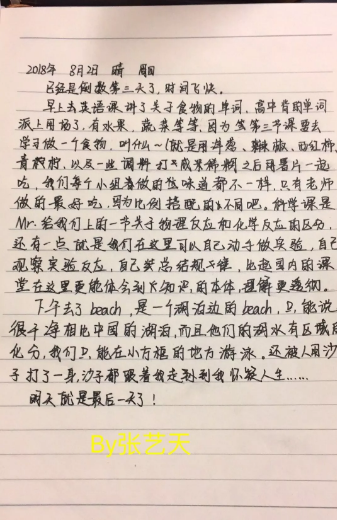 2018年 8月2日 晴 阴
已经是倒数第三天了,时间飞快。
早上去英语课讲了关于食物的单词,高中背的单词
派上用场了,有水果,蔬菜等等,因为第三节课要去
学习做一个食物,叫什么~(就是用洋葱、辣椒、西红柿、
青柠檬,以及一些调料打成浆糊糊之后用薯片一起
吃,我们每个小组卷做的味道都不一样,只有老师
做的最好吃,因为比例搭配的不同吧。科学课是
Mr.给我们上的一节关于物理反应和化学反应的区分,
还有一点就是我们在这里可以自己动手做实验,自己
观察实验反应,自己总结规律,比起国内的课
堂在这里更能体会到知识的本体,理解更透彻。
下午去了beach,是一个湖泊边的beach,只能说
很干净相比中国的湖泊,而且他们的湖水有区域的
化分,我们只能在小方框的地方游泳。还被人用沙
子打了一身,沙子都跟着我走到我怀疑人生……
明天就是最后一天了!
By张艺天